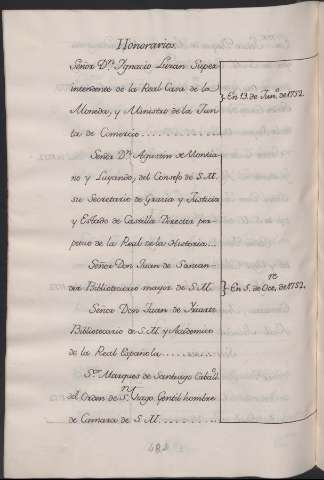 Honorarios.
Señor Dn. Ignacio Luzan Super
intendente de la Real Casa de la
Moneda, y Ministro de la Jun
ta de Comercio
En 13. de Juno. de 1752.
Señor Dn. Agustin de Montia
no y Luyando, del Consejo de S.M.
su Secretario de Gracia y Justicia
y Estado de Castilla Director per
petuo de la Real de la Historia
Señor Don Juan de Santan
der Bibliotecario mayor de S.M.
Señor Don Juan de Yriarte
Bibliotecario de S.M. y Academico
de la Real Española
Sor. Marques de Santiago Caballo
del Orden de Sn. Tiago Gentil hombre
de Camara de S.M.
En 5. de Ocre. de 1752.